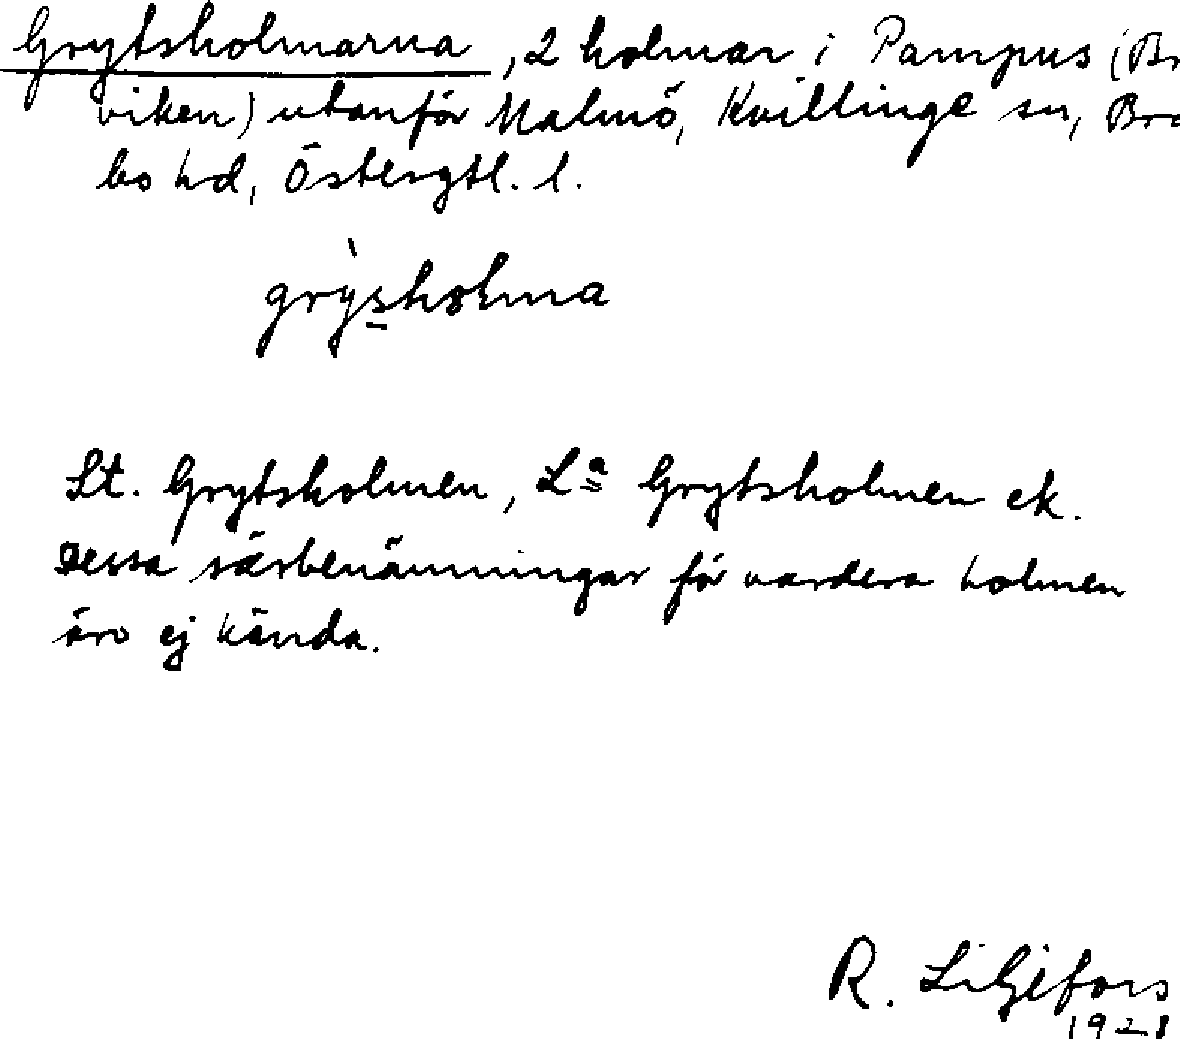 Grytsholmarna, 2 holmar i Pampus (Br
viken) utanför Malmö, Kvillinge sn, Brå
bo hd, Östergtl. l.
grỳsholma
St. Grytsholmen, La Grytsholmen ek.
Dessa särbenämningar för vardera holmen
äro ej kända.
R. Liljefors
1928